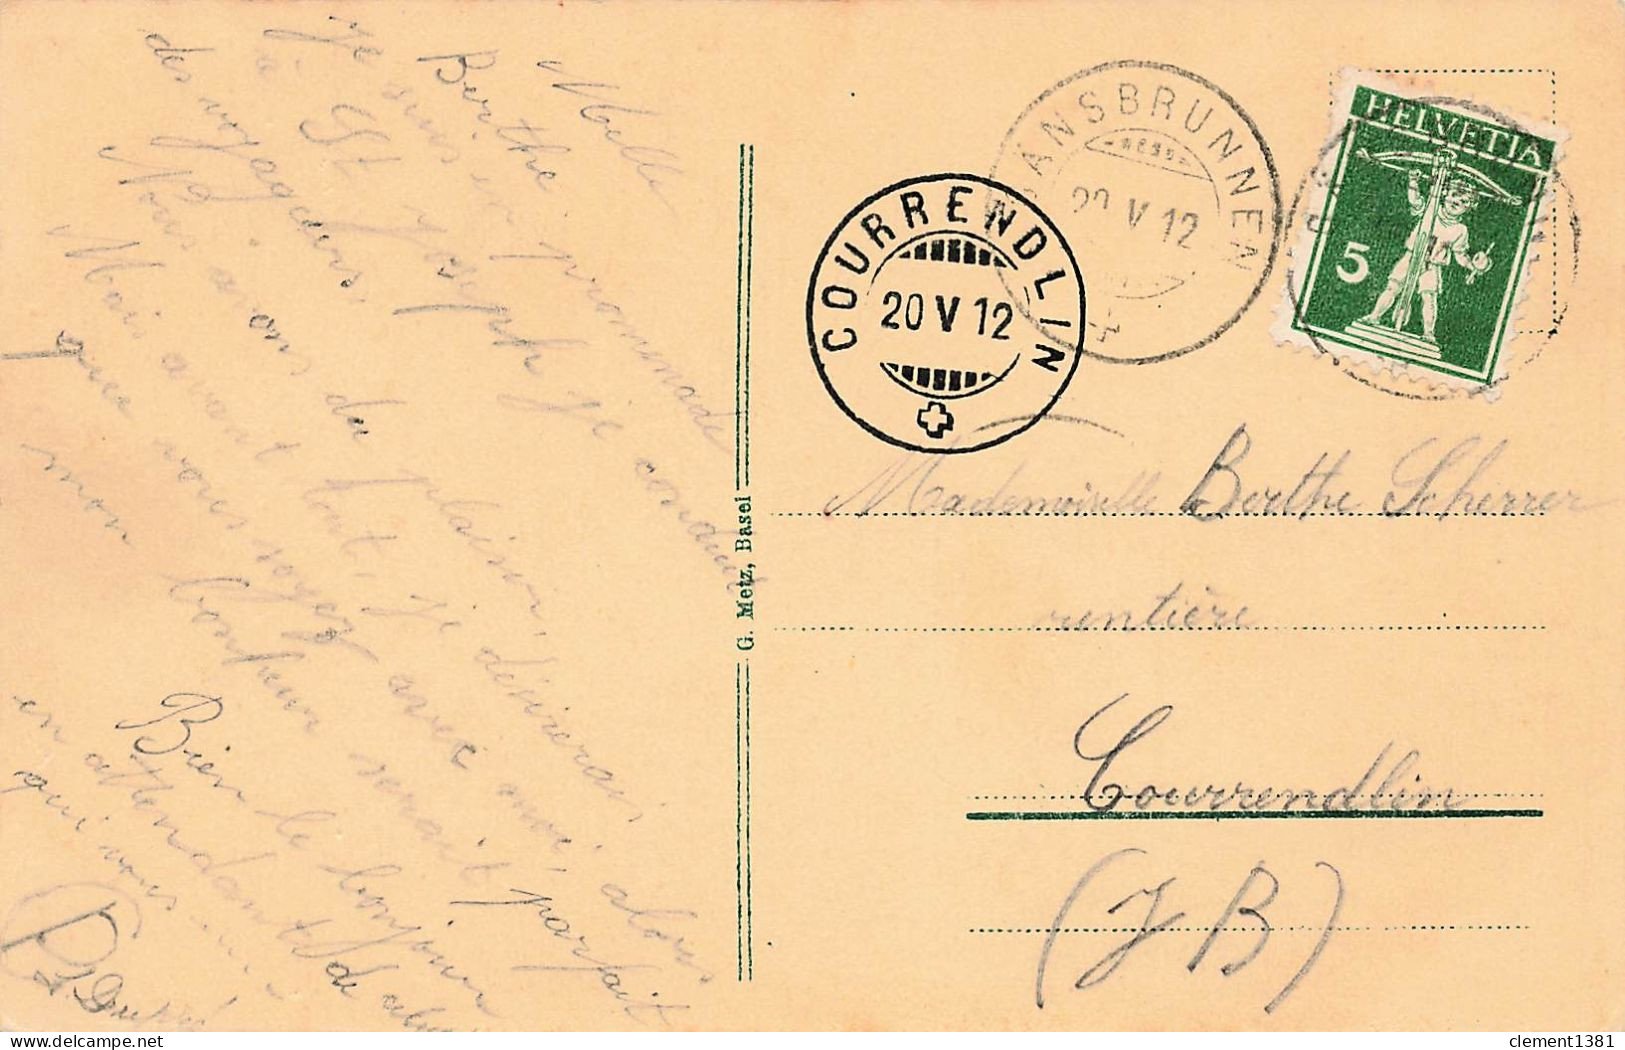 Melle
Berthe
Je suis en promenade
à St Joseph je conduis
des voyageurs.
Nous avons du plaisir,
Mais avant tout, je désirerais
que vous soyez avec moi, alors
mon bonheur serait parfait
Bien le bonjour
en attendant de
qui vous
G. Metz, Basel
GÄNSBRUNNEN
20 V 12
COURRENDLIN
20 V 12
HELVETIA
5
Mademoiselle Berthe Scherrer
rentière
Courrendlin
(J B)
clement1381